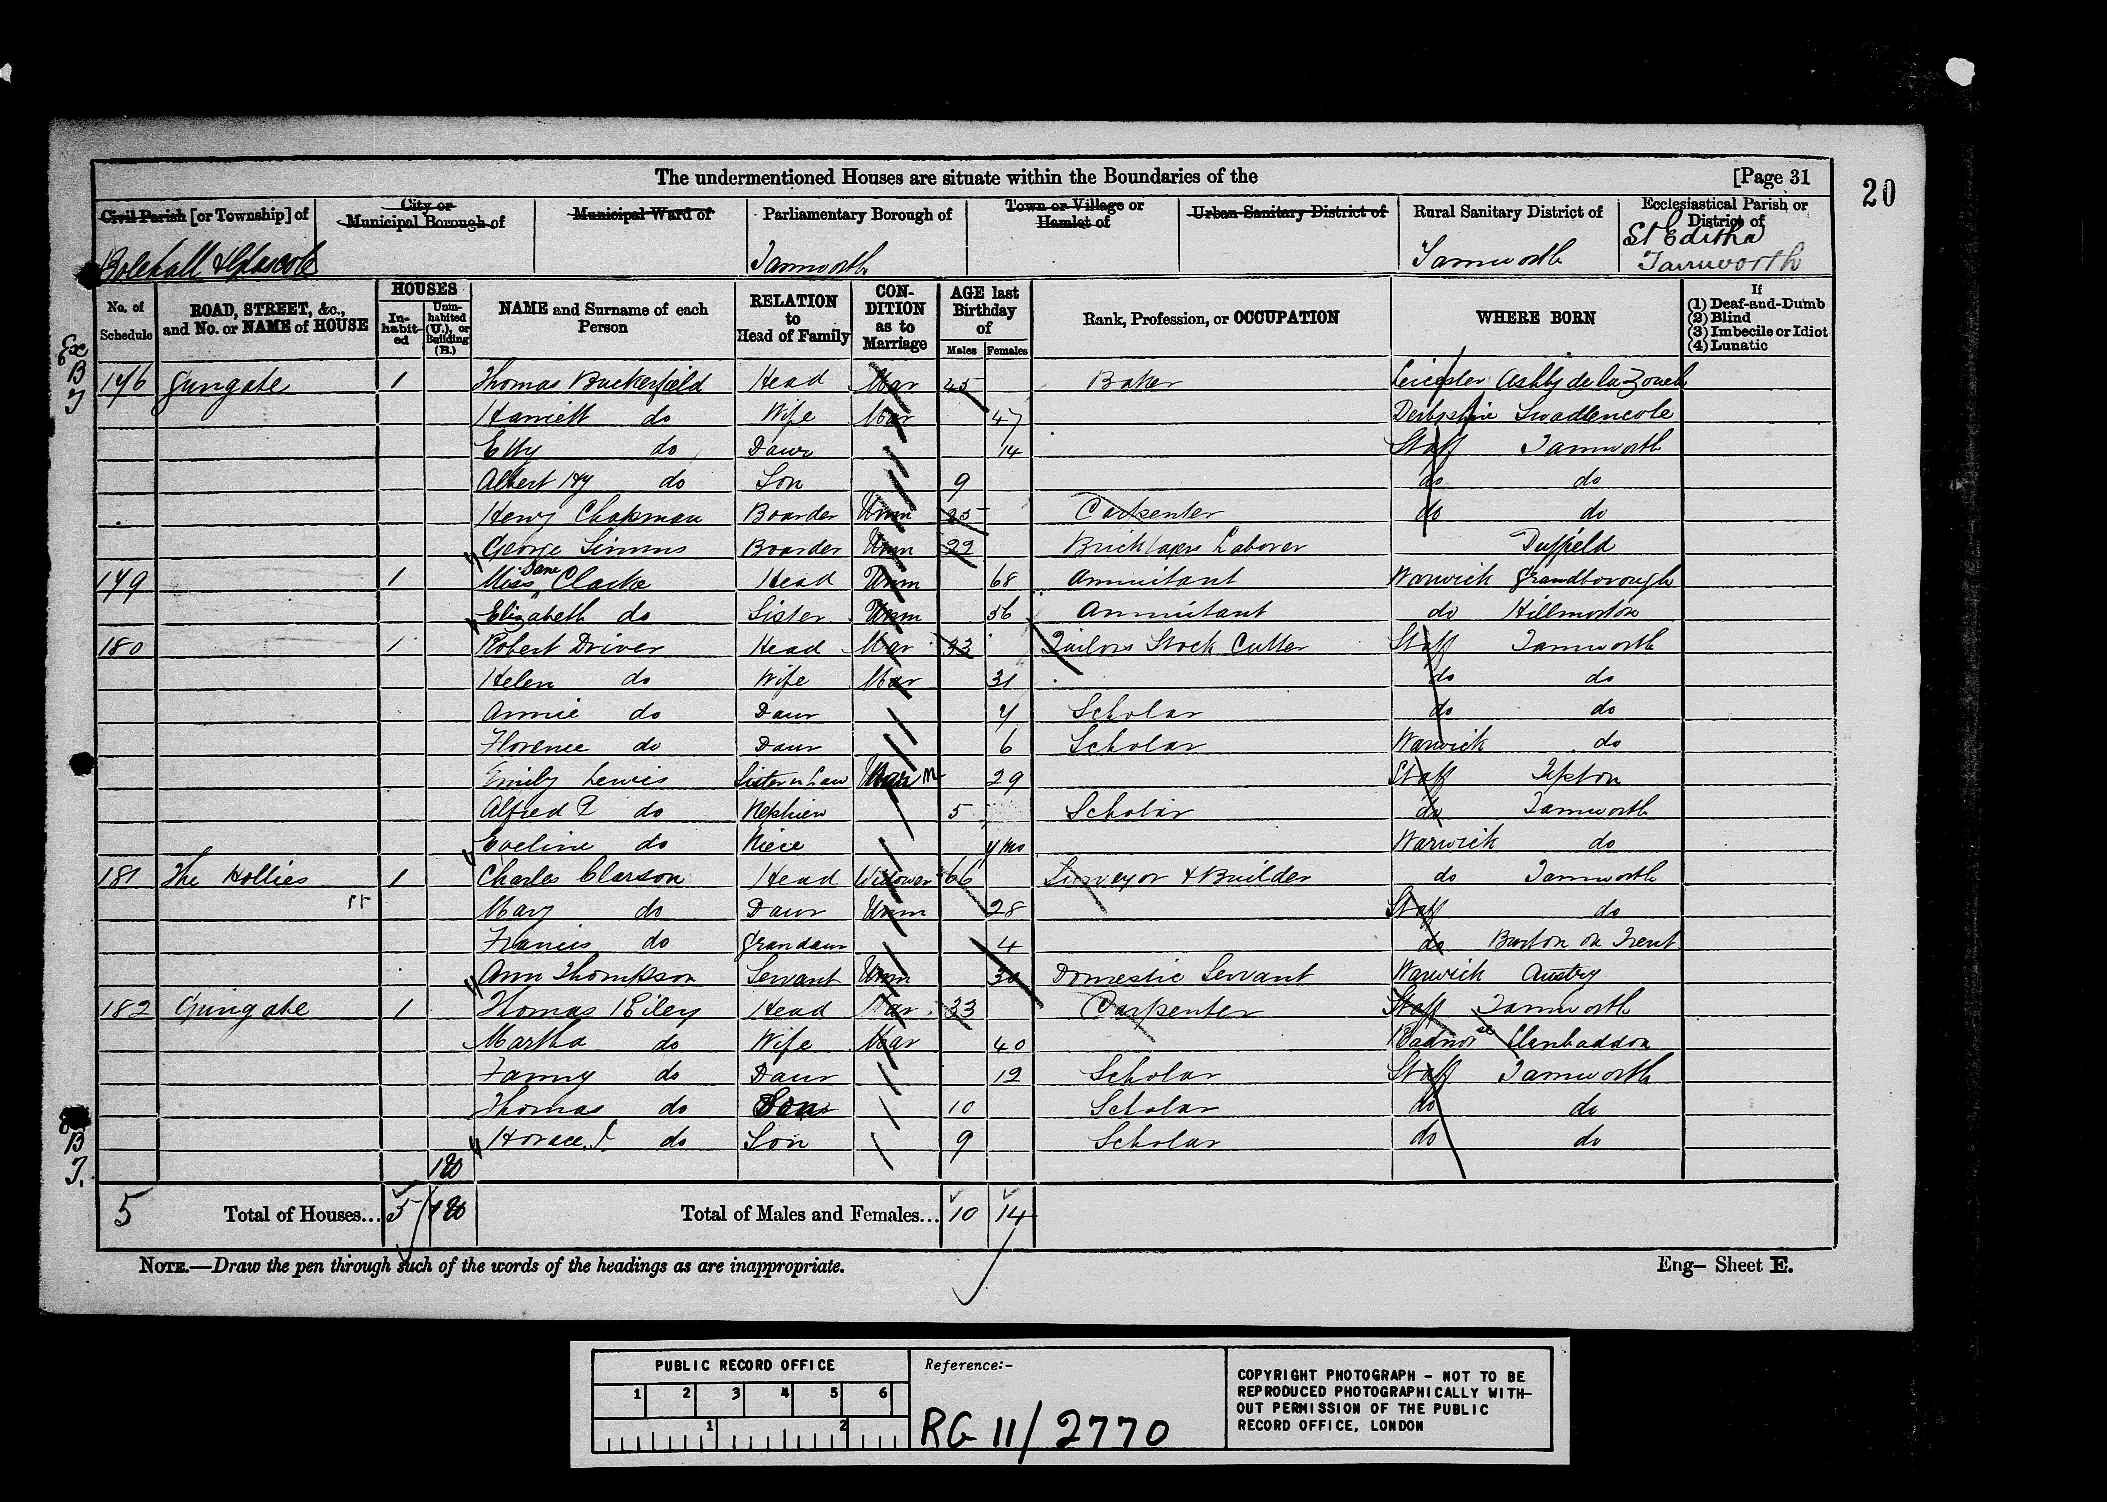 The undermentioned Houses are situate within the Boundaries of the [Page 31
20
Civil Parish [or Township] of City or Municipal Borough of Municipal Ward of Parliamentary Borough of Town or Village or Hamlet of Urban Sanitary District of Rural Sanitary District of Ecclesiastical Parish or District of
Bolehall & Glascote Tamworth Tamworth St Editha Tamworth
No. of Schedule ROAD, STREET, &c., and No. or NAME of HOUSE HOUSES In-habit-ed Unin-habited (U.), or Building (B.) NAME and Surname of each Person RELATION to Head of Family CON-DITION as to Marriage AGE last Birthday of Males Females Rank, Profession, or OCCUPATION WHERE BORN If (1) Deaf-and-Dumb (2) Blind (3) Imbecile or Idiot (4) Lunatic
176 Gungate 1 Thomas Buckerfield Head Mar 45 Baker Leicester Ashby de la Zouch
Harriett do Wife Mar 47 Derbyshire Swadlencote
Effy do Daur 14 Staff Tamworth
Albert Hy do Son 9 do do
Henry Chapman Boarder Unm 25 Carpenter do do
George Simms Boarder Unm 22 Bricklayers Laborer Duffield
179 1 Miss Jane Clarke Head Unm 68 Annuitant Warwick Grandborough
Elizabeth do Sister Unm 56 Annuitant do Hillmorton
180 1 Robert Driver Head Mar 33 Tailors Stock Cutter Staff Tamworth
Helen do Wife Mar 31 do do
Annie do Daur 7 Scholar do do
Florence do Daur 6 Scholar Warwick do
Emily Lewis Sister in Law Mar 29 Staff Tipton
Alfred P do Nephew 5 Scholar do Tamworth
Eveline do Niece 7 mo Warwick do
181 The Hollies 1 Charles Clarson Head Widower 66 Surveyor & Builder do Tamworth
Mary do Daur Unm 28 Staff do
Francis do Grandaur 4 do Burton on Trent
Ann Thompson Servant Unm 30 Domestic Servant Warwick Austry
182 Gungate 1 Thomas Riley Head Mar 33 Carpenter Staff Tamworth
Martha do Wife Mar 40 Radnor Llanbaddon
Fanny do Daur 12 Scholar Staff Tamworth
Thomas do Son 10 Scholar do do
Horace J do Son 9 Scholar do do
5 Total of Houses... 5 Total of Males and Females... 10 14
NOTE.—Draw the pen through such of the words of the headings as are inappropriate. Eng– Sheet E.
PUBLIC RECORD OFFICE
1 2 3 4 5 6
1 2
Reference:-
RG 11/2770
COPYRIGHT PHOTOGRAPH – NOT TO BE
REPRODUCED PHOTOGRAPHICALLY WITH-
OUT PERMISSION OF THE PUBLIC
RECORD OFFICE, LONDON